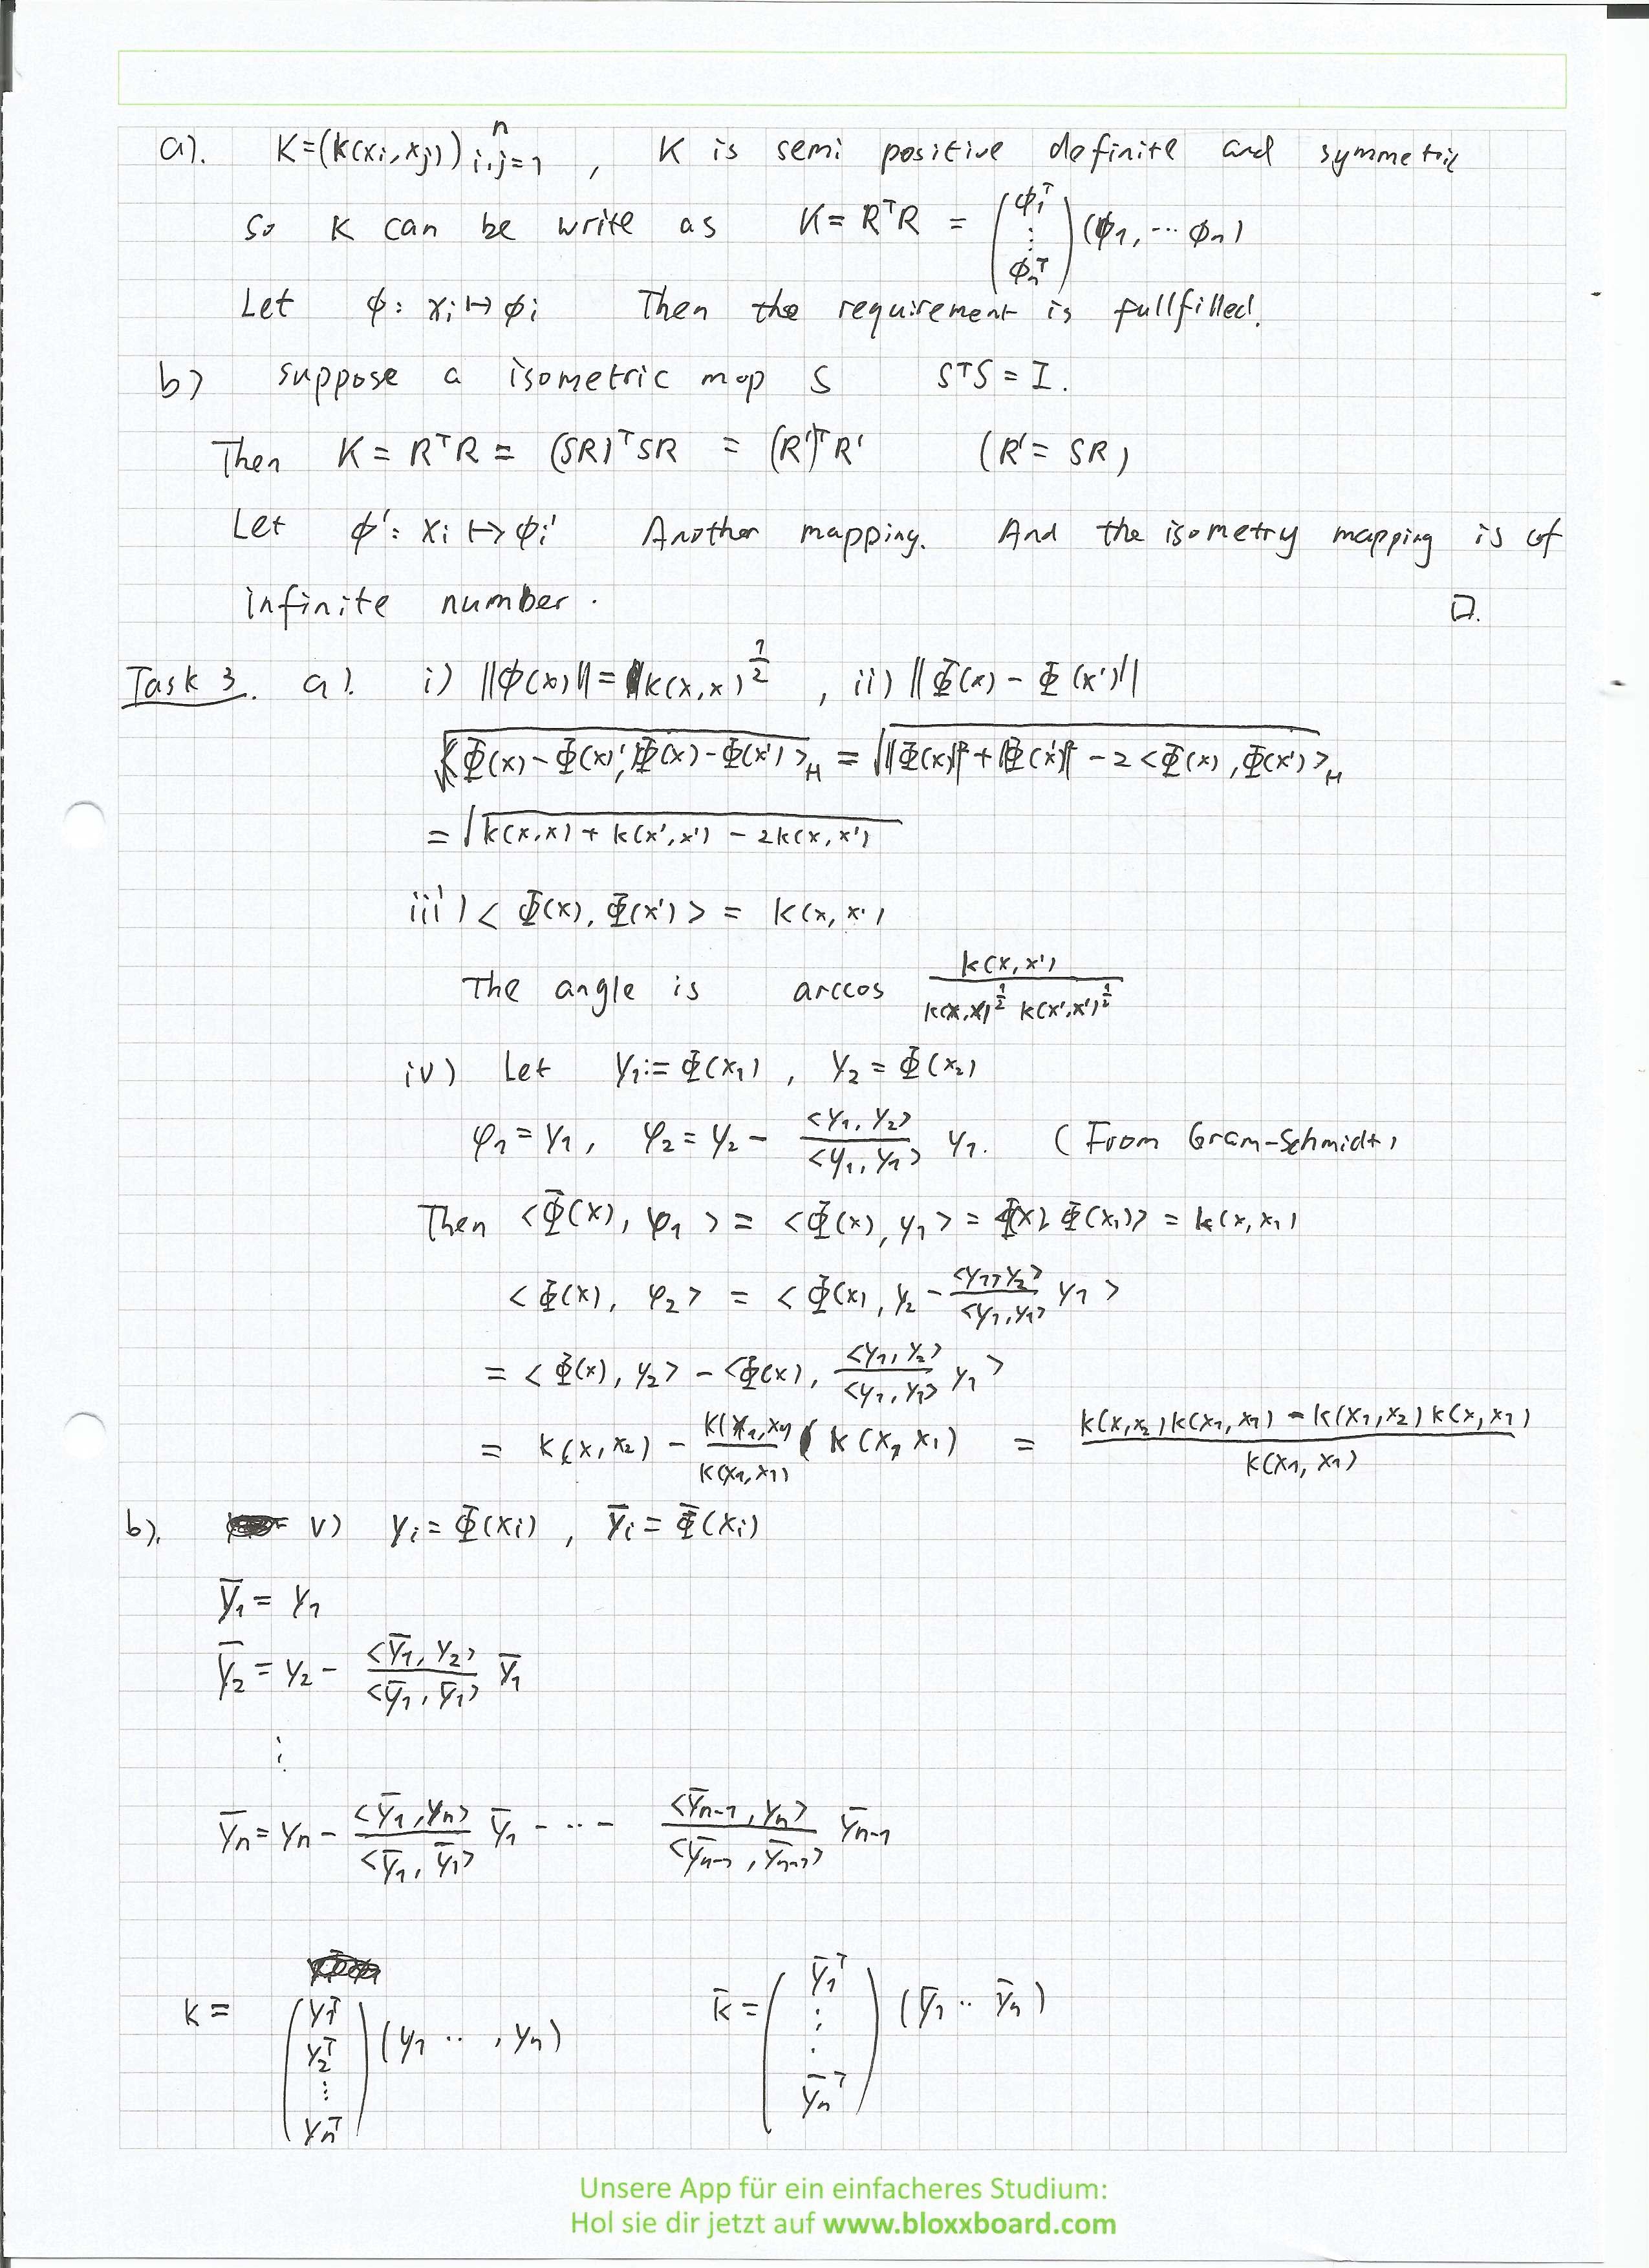 a). K=(k(xi,xj)) i,j=1 n , K is semi positive definite and symmetric
So K can be write as K = RᵀR = (ϕ1ᵀ ⋮ ϕnᵀ) (ϕ1, ··· ϕn)
Let ϕ: xi ↦ ϕi Then the requirement is fullfilled.
b) suppose a isometric map S SᵀS = I.
Then K = RᵀR = (SR)ᵀSR = (R')ᵀR' (R' = SR)
Let ϕ': xi ↦ ϕi' Another mapping. And the isometry mapping is of
infinite number. □.
Task 3. a). i) ||Φ(x)|| = k(x,x)^(1/2) , ii) ||Φ(x) - Φ(x')||
√<Φ(x)-Φ(x)', Φ(x)-Φ(x')>_H = √||Φ(x)||²+||Φ(x')||² - 2<Φ(x),Φ(x')>_H
= √k(x,x) + k(x',x') - 2k(x,x')
iii) < Φ(x), Φ(x') > = k(x,x')
The angle is arccos k(x,x') / k(x,x)^(1/2) k(x',x')^(1/2)
iv) Let y1:= Φ(x1) , y2 = Φ(x2)
φ1 = y1, φ2 = y2 - <y1,y2> / <y1,y1> y1. (From Gram-Schmidt)
Then <Φ(x), φ1> = <Φ(x), y1> = <Φ(x), Φ(x1)> = k(x,x1)
<Φ(x), φ2> = <Φ(x), y2 - <y1,y2> / <y1,y1> y1 >
= <Φ(x), y2> - <Φ(x), <y1,y2> / <y1,y1> y1>
= k(x,x2) - k(x1,x2) / k(x1,x1) k(x,x1) = k(x,x2)k(x1,x1) - k(x1,x2)k(x,x1) / k(x1,x1)
b). v) yi = Φ(xi) , ȳi = Φ̄(xi)
ȳ1 = y1
ȳ2 = y2 - <ȳ1,y2> / <ȳ1,ȳ1> ȳ1
⋮
ȳn = yn - <ȳ1,yn> / <ȳ1,ȳ1> ȳ1 - ·· - <ȳn-1,yn> / <ȳn-1,ȳn-1> ȳn-1
K = (y1ᵀ y2ᵀ ⋮ ynᵀ) (y1 ·· , yn) K̄ = (ȳ1ᵀ ⋮ ȳnᵀ) (ȳ1 ·· ȳn)
Unsere App für ein einfacheres Studium:
Hol sie dir jetzt auf www.bloxxboard.com